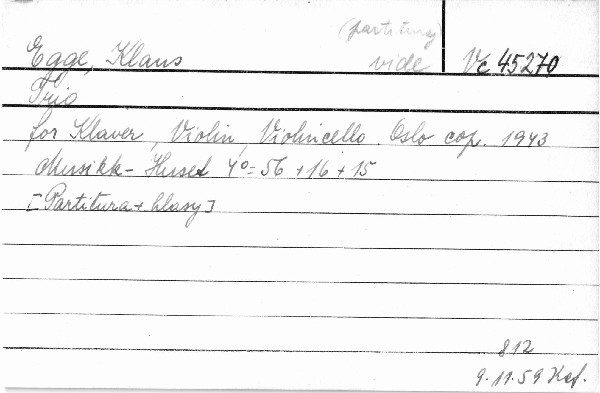 (partitura)
Egge, Klaus vide Vc 45270
Trio
for Klaver, Violin, Violincello. Oslo cop. 1943
Musikk-Huset 4º- 56 + 16 + 15
[Partitura + hlasy]
812
9.11.59 Kef.